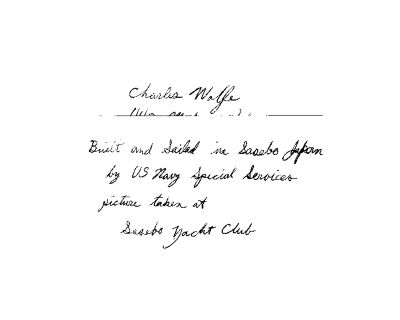 Charles Wolfe
Built and Sailed in Sasebo Japan
by US Navy Special Services
picture taken at
Sasebo Yacht Club